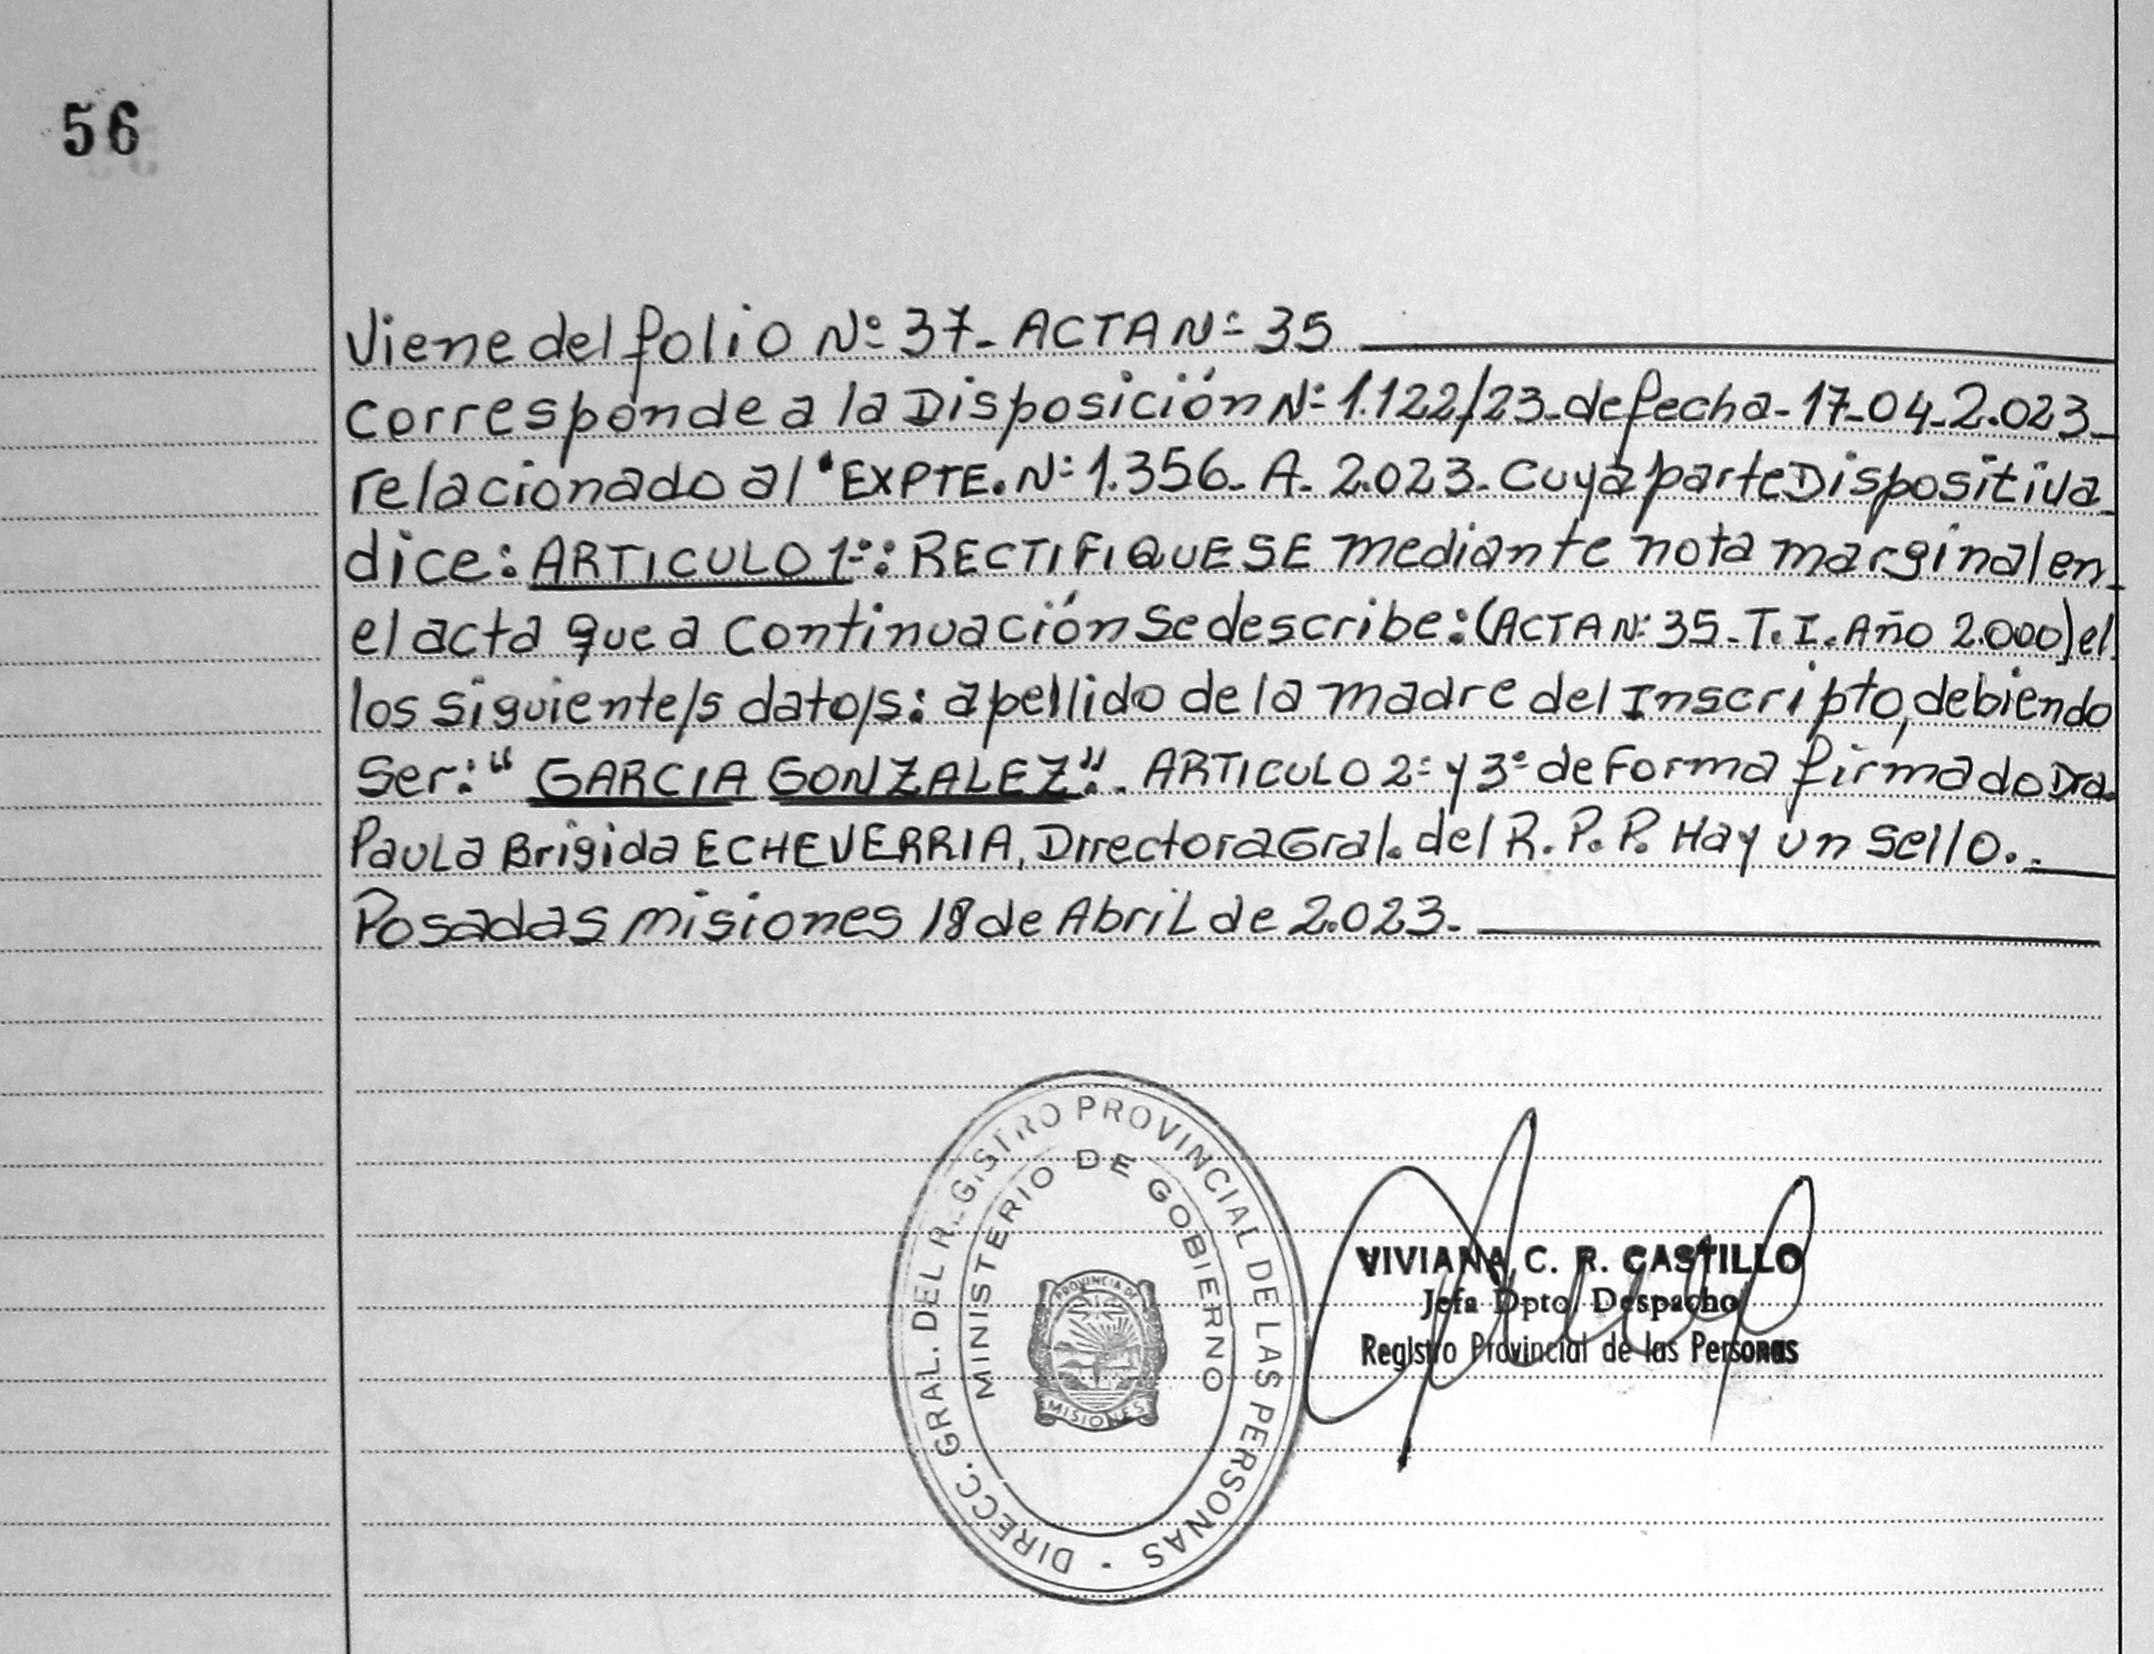 56
Viene del folio Nº 37- ACTA Nº 35
Corresponde a la Disposición Nº 1.122/23- de fecha- 17-04-2.023-
relacionado al "EXPTE. Nº 1.356- A- 2.023- Cuya parte Dispositiva
dice: ARTICULO 1º: RECTIFIQUESE mediante nota marginal en
el acta que a continuación Se describe: (ACTA Nº 35- T.I. Año 2.000) el
los siguiente/s dato/s: apellido de la madre del Inscripto, debiendo
Ser: "GARCIA GONZALEZ". ARTICULO 2º y 3º de Forma firmado Dra.
Paula Brigida ECHEVERRIA, Directora Gral. del R. P. P. Hay un Sello..
Posadas misiones 18 de Abril de 2.023.
DIRECC. GRAL. DEL REGISTRO PROVINCIAL DE LAS PERSONAS
MINISTERIO DE GOBIERNO
PROVINCIA DE
MISIONES
VIVIANA C. R. CASTILLO
Jefa Dpto. Despacho
Registro Provincial de las Personas